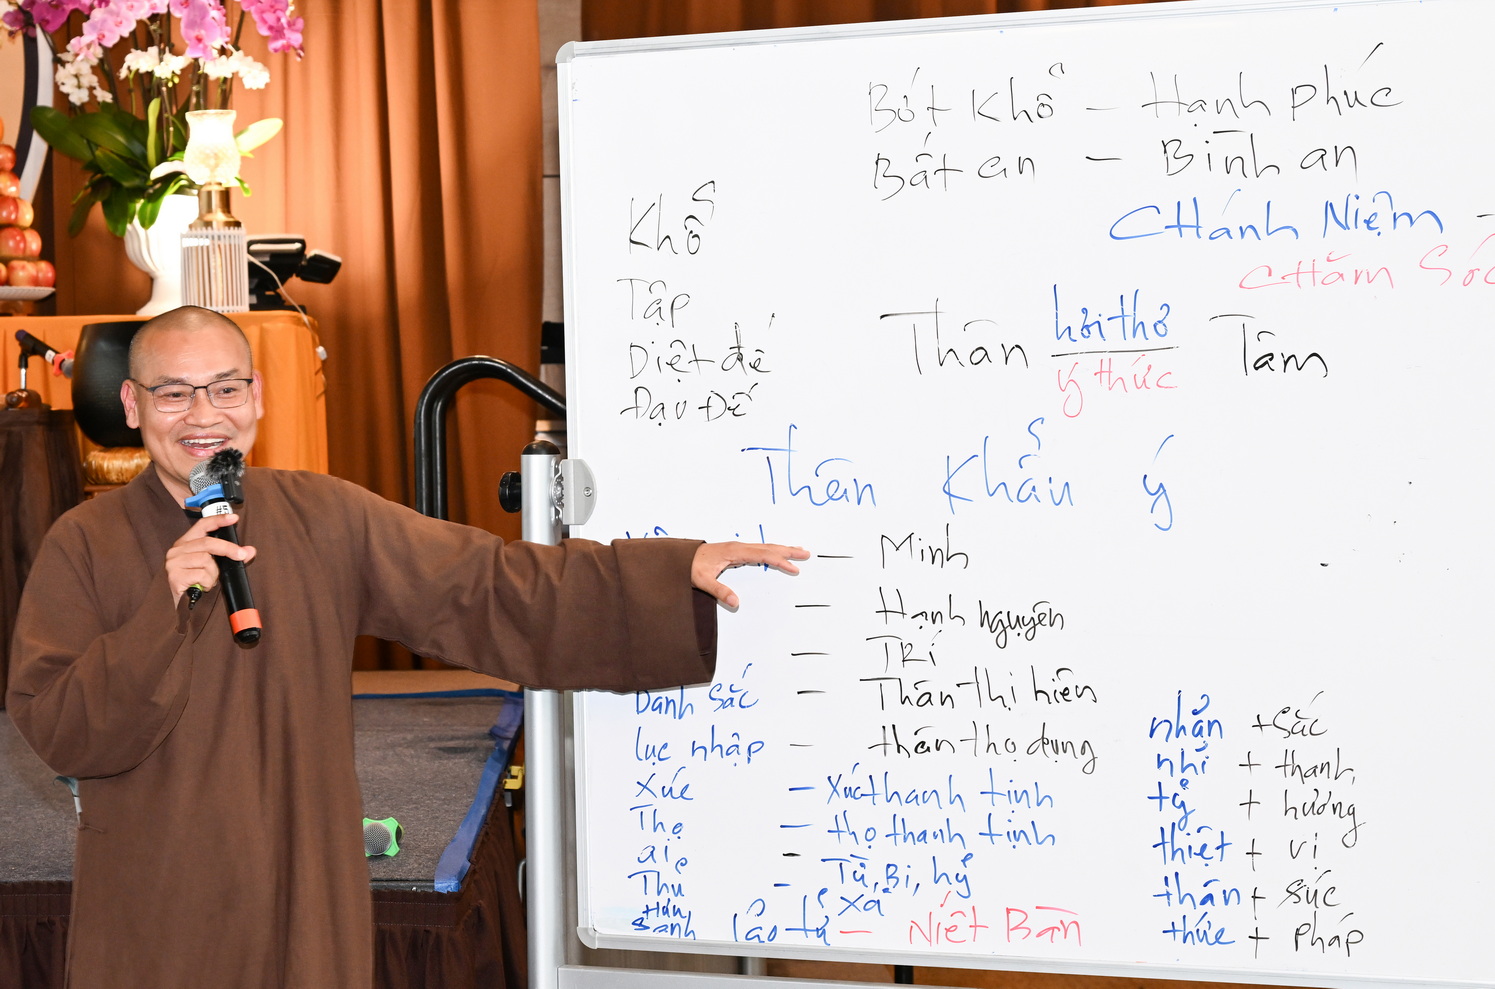 Bớt Khổ – Hạnh phúc
Bất an – Bình an
CHÁnh Niệm -
CHĂm Sóc
Khổ
Tập
Diệt đế
Đạo Đế
Thân hơi thở Tâm
ý thức
Thân Khẩu ý
– Minh
– Hạnh nguyện
– TRí
Danh Sắc – Thân thị hiện
lục nhập – thân thọ dụng
Xúc – Xúc thanh tịnh
Thọ – thọ thanh tịnh
ái – Từ, Bi, hỷ
Thủ xả
Hữu
Sanh lão tử – Niết Bàn
nhãn + Sắc
nhĩ + thanh
tỷ + hương
thiệt + vị
thân + xúc
thức + pháp
#5